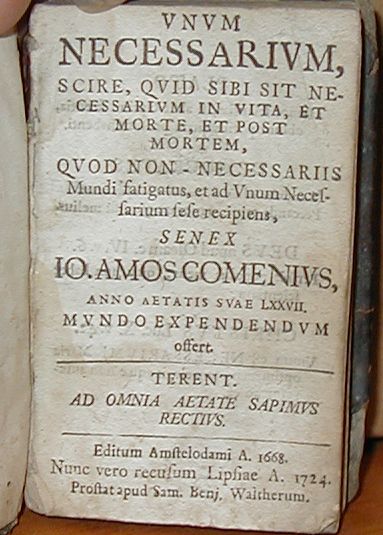 VNVM
NECESSARIVM,
SCIRE, QVID SIBI SIT NE-
CESSARIVM IN VITA, ET
MORTE, ET POST
MORTEM,
QVOD NON-NECESSARIIS
Mundi fatigatus, et ad Vnum Neces-
sarium sese recipiens,
SENEX
IO. AMOS COMENIVS,
ANNO AETATIS SVAE LXXVII.
MVNDO EXPENDENDVM
offert.
TERENT.
AD OMNIA AETATE SAPIMVS
RECTIVS.
Editum Amstelodami A. 1668.
Nunc vero recusum Lipsiae A. 1724.
Prostat apud Sam. Benj. Waltherum.